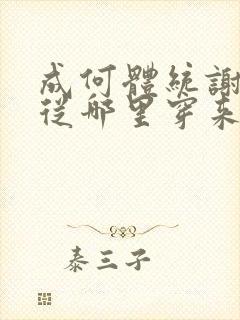 成何體統謝
從哪里穿來
泰三子